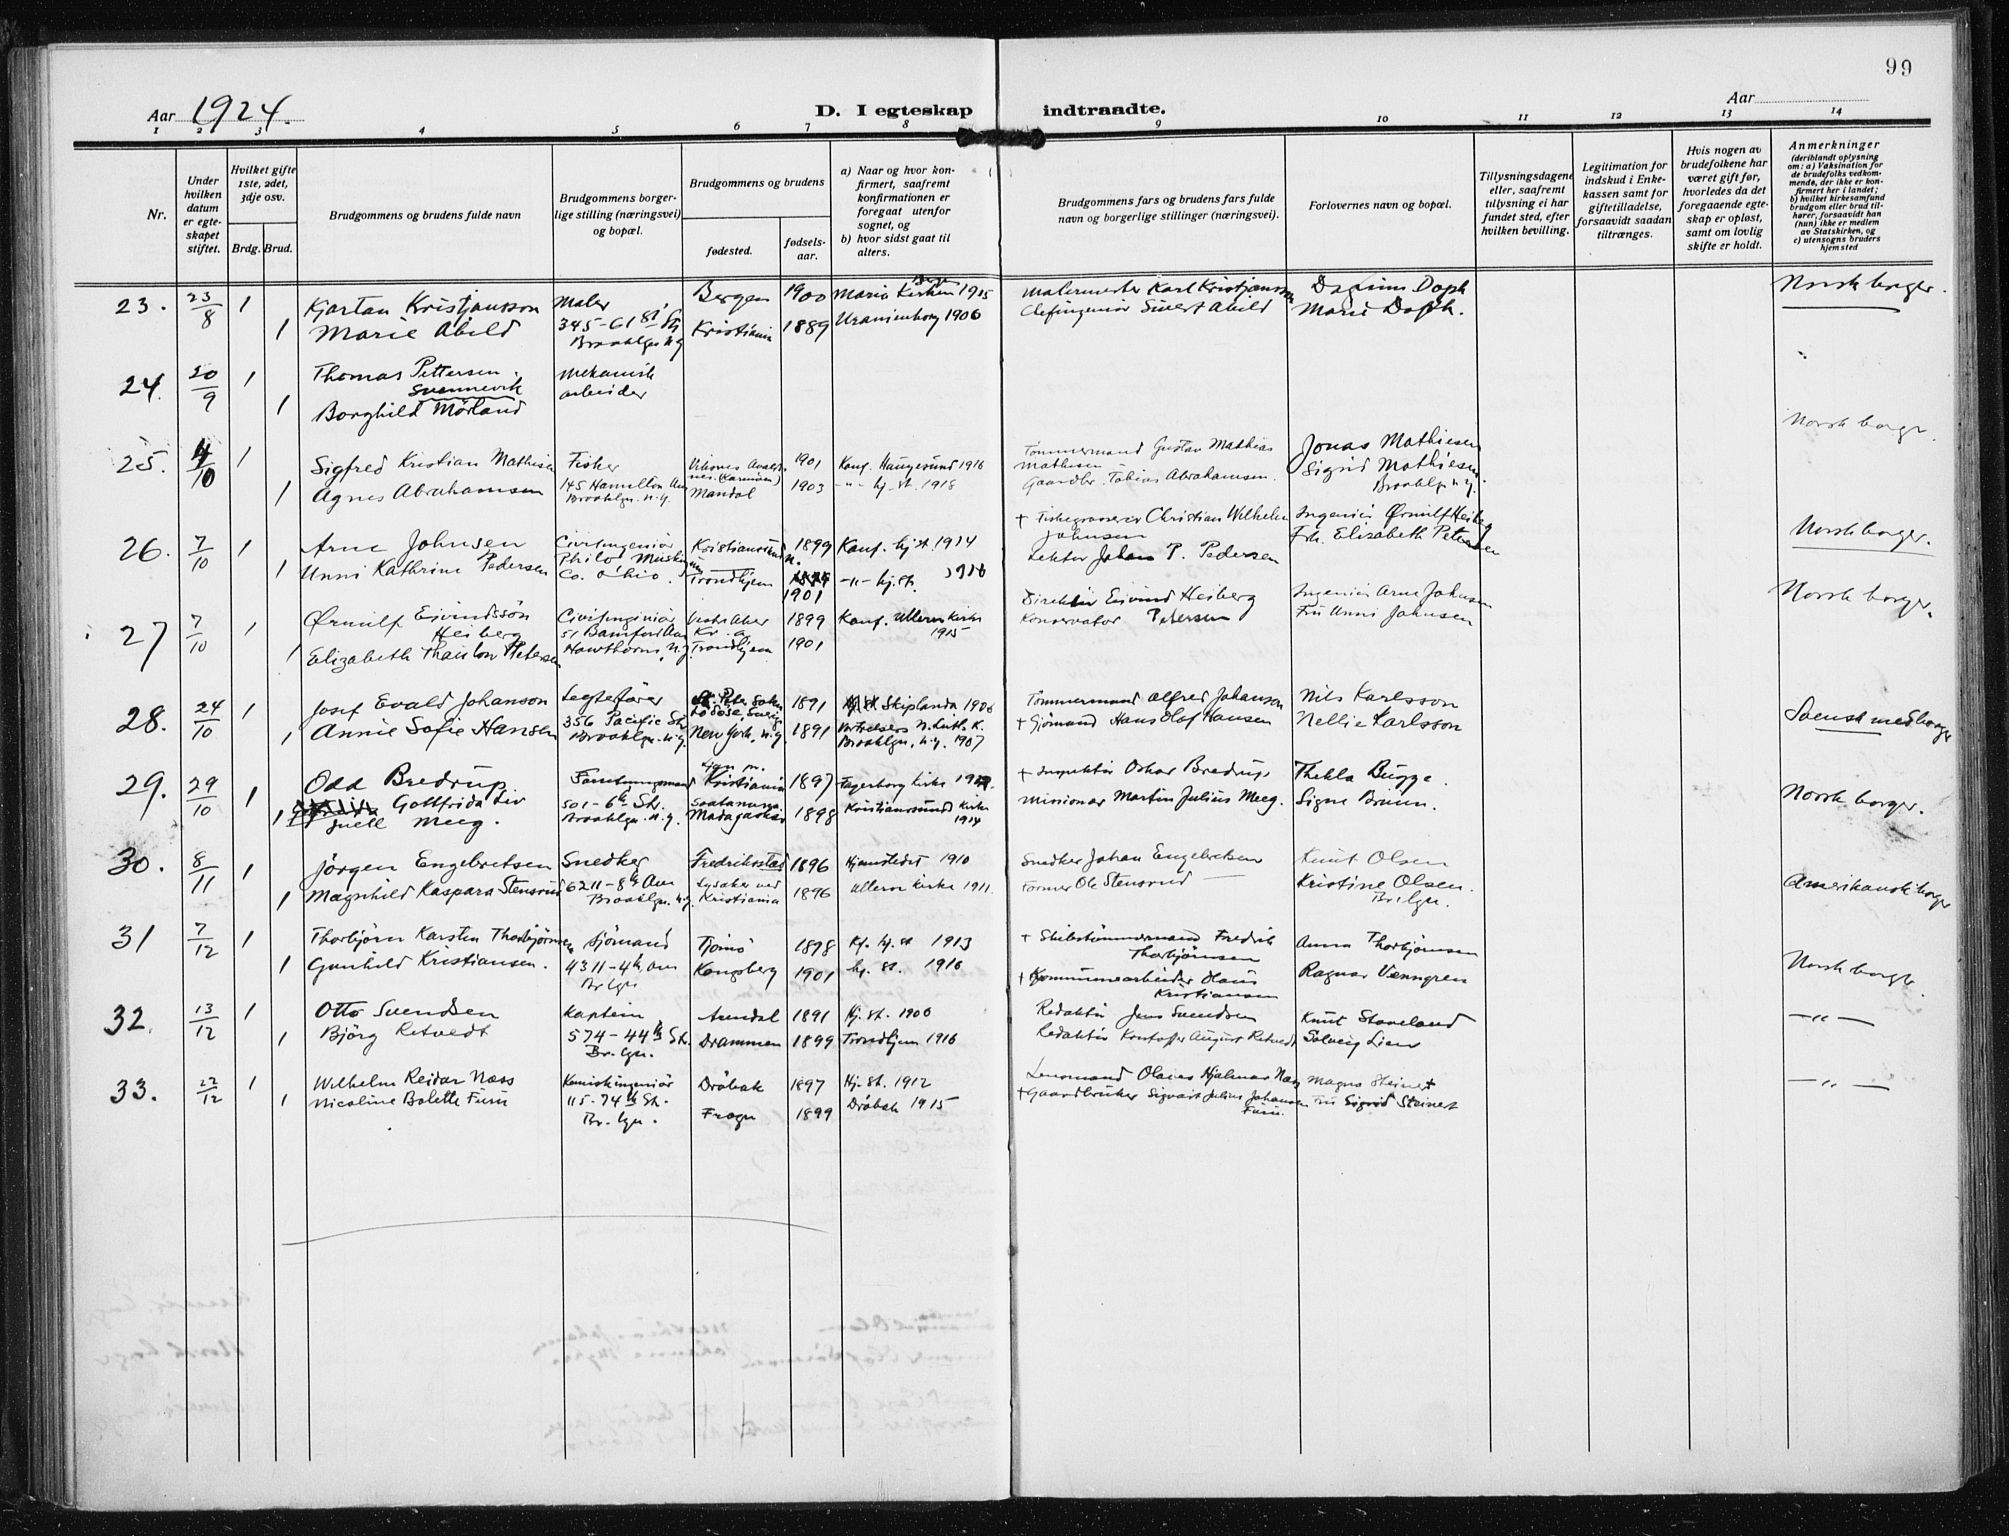 99
Aar 1924.
D. I egteskap indtraadte.
Aar
1 2 3 4 5 6 7 8 9 10 11 12 13 14
Nr.
Under hvilken datum er egteskapet stiftet.
Hvilket gifte 1ste, 2det, 3dje osv.
Brdg. Brud.
Brudgommens og brudens fulde navn
Brudgommens borgerlige stilling (næringsvei) og bopæl.
Brudgommens og brudens
fødested.
fødselsaar.
a) Naar og hvor konfirmert, saafremt konfirmationen er foregaat utenfor sognet, og
b) hvor sidst gaat til alters.
Brudgommens fars og brudens fars fulde navn og borgerlige stillinger (næringsvei).
Forlovernes navn og bopæl.
Tillysningsdagene eller, saafremt tillysning ei har fundet sted, efter hvilken bevilling.
Legitimation for indskud i Enkekassen samt for giftetilladelse, forsaavidt saadan tiltrænges.
Hvis nogen av brudefolkene har været gift før, hvorledes da det foregaaende egteskap er opløst, samt om lovlig skifte er holdt.
Anmerkninger
(deriblandt oplysning om: a) Vaksination for de brudefolks vedkommende, der ikke er konfirmert her i landet; b) hvilket kirkesamfund brudgom eller brud tilhører, forsaavidt han (hun) ikke er medlem av Statskirken, og c) utensogns bruders hjemsted
23. 23/8 1 Kjartan Kristjansson Maler Bergen 1900 Maria Kirken 1915 Malermester Karl Kristjansson Norsk borger.
1 Marie Abild 345-61 St Brooklyn N.Y Kristiania 1889 Uranienborg 1906 Sivert Abild Marie
24. 20/9 1 Thomas Pettersen Svennevik mekanisk arbeider
1 Borghild Mørland
25. 4/10 1 Sigfred Kristian Mathisen Fisker 1901 Konf. Haugesund 1916 Tømmermand Gustav Mathias Mathisen Jonas Mathiesen Norsk borger.
1 Agnes Abrahamsen 145 Hamilton Av Brooklyn. N.Y. Mandal 1903 -"- hj. st. 1918 Gaardbr. Tobias Abrahamsen. Sigrid Mathiesen. Brooklyn N.Y.
26. 7/10 1 Arne Johnsen Civilingeniør Kristianssund n. 1899 Konf. hj st. 1914 + Christian Wilhelm Johnsen Ingeniør Ørnulf Heiberg Norsk borger.
1 Unni Kathrine Pedersen Co. Ohio. Trondhjem 1901 -"- hj. st. 1916 Lektor Johan P. Pedersen Frk. Elizabeth Petersen
27 7/10 1 Ørnulf Eivindssøn Heiberg Civilingeniør Vestre Aker 1899 Konf. Ullern Kirke 1915 Direktør Eivind Heiberg Ingeniør Arne Johnsen Norsk borger.
1 Elizabeth Petersen 51 Hawthorne, N.J. Trondhjem 1901 Konservator Petersen Fru Unni Johnsen
28. 24/10 1 Josef Evald Johanson 1891 Skeplanda 1906 Tømmermand Alfred Johanson Nils Karlsson Svensk medborger
1 Annie Sofie Hansen 356 Pacific St. Brooklyn. N.Y. New York, N.Y. 1891 N. Luth. K. Brooklyn, N.Y. 1907 + Sjømand Hans Olaf Hansen Nellie Karlsson
29. 29/10 1 Odd Bredrup Kristiania 1897 Fagerborg Kirke + Inspektør Oskar Bredrup Thekla Bugge. Norsk borger.
1 Gottfrida Liv Juell Meeg. 501-6th St. Brooklyn. N.Y. Madagaskar 1898 Kristianssund Kirke 1914 Missionær Martin Julius Meeg. Signe Bruun.
30. 8/11 1 Jörgen Engebretsen Snedker Fredriksstad 1896 Hjemstedet 1910 Snedker Johan Engebretsen Knut Olsen Amerikansk borger
1 Magnhild Kaspara Stensrud 6211-8th Ave Brooklyn. N.Y. Lysaker ved Kristiania 1896 Ullern Kirke 1911. Former Ole Stensrud Kristine Olsen. Br.lyn.
31 7/12 1 Thorbjörn Karsten Thorbjörnsen Sjömand Tjömö 1898 Kf. hj. st 1913 + Skibstömmermand Fredrik Thorbjörnsen Anna Thorbjörnsen
1 Gunhild Kristiansen. 4311-4th Ave Br.lyn Kongsberg 1901 hj. st. 1916 + Kommunearbeider Hans Kristiansen Ragnar Venngren Norsk borger.
32. 13/12 1 Otto Svendsen Kaptein Arendal 1891 Hj. st. 1906 Redaktör Jens Svendsen Knut Staveland -"-
1 Björg Retvedt 574-44th St. Br.lyn. Drammen 1899 Trondhjem 1916 Redaktör August Retvedt Solveig Lien
33. 22/12 1 Wilhelm Reidar Næss Kemiskingeniør Dröbak 1897 Hj. st. 1912 Lensmand Olaves Hjalmar Næss Magnus Steinert -"-
1 Nicoline Bolette Furu 115-74th St. Br.lyn. Frogn 1899 Dröbak 1915 + Gaardbruker Sigvart Julius Johansen Furu. Fru Sigrid Steinert